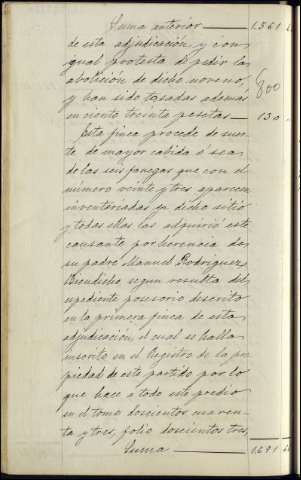 Suma anterior — 1.561
de esta adjudicación y con
igual protesta de pedir la
abolición de dicho noveno,
y han sido tasadas además
en ciento treinta pesetas — 130
800
Esta finca procede de suer-
te de mayor cabida ó sea
de las seis fanegas que con el
número veinte y tres aparecen
inventariadas en dicho sitio
y todas ellas las adquirió este
causante por herencia de
su padre Manuel Rodriguez
Bendicho, segun resulta del
espediente posesorio descrito
en la primera finca de esta
adjudicación, el cual se halla
inscrito en el Registro de la pro
piedad de este partido por lo
que hace a todo este predio
en el tomo doscientos cuaren-
ta y tres, folio doscientos tres,
Suma — 1.691